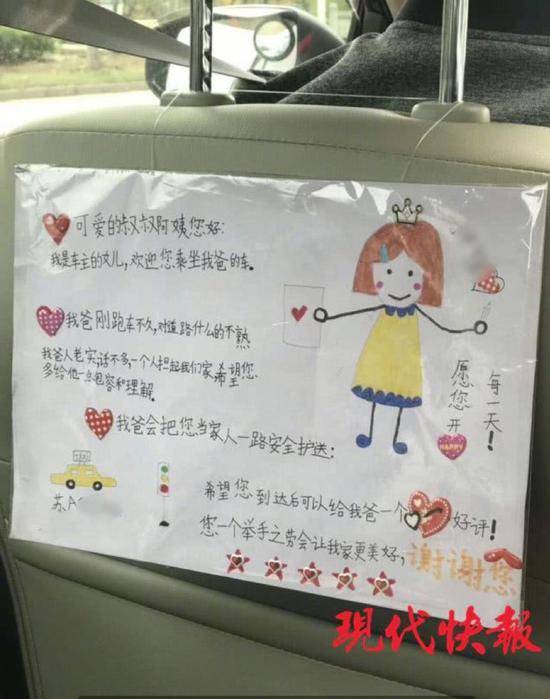 可爱的叔叔阿姨您好:
我是车主的女儿,欢迎您乘坐我爸的车.
我爸刚跑车不久,对道路什么的不熟
我爸人老实,话不多,一个人担起我们家希望您
多给他一点包容和理解.
我爸会把您当家人一路安全护送:
希望您到达后可以给我爸一个好评!
您一个举手之劳会让我家更美好,谢谢您
愿您开
HAPPY
每一天!
苏A
现代快報